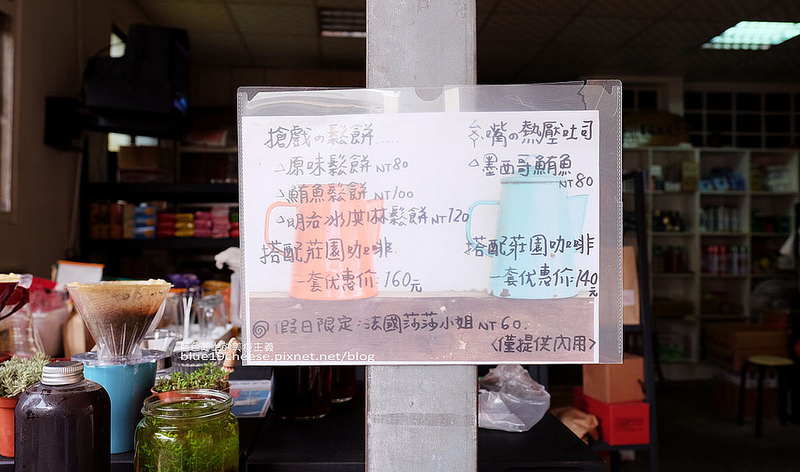 搶戲の鬆餅.....
△原味鬆餅NT80
△鮪魚鬆餅NT100
△明治冰淇淋鬆餅NT120
搭配莊園咖啡
一套优惠价:160元
嘴の熱壓吐司
△墨西哥鮪魚
NT80
搭配莊園咖啡
一套优惠价:140元
◎假日限定:法國莎莎小姐NT60.
<僅提供內用>
blue19cheese.pixnet.net/blog